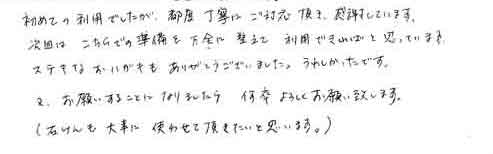 初めての利用でしたが、都度 丁寧に ご対応 頂き、感謝しています。
次回は こちらでの準備を 万全に 整えて 利用できればと 思っています。
ステキな おハガキも ありがとうございました。うれしかったです。
又、お願いすることに なりましたら 何卒 よろしくお願い致します。
(石けんも 大事に 使わせて頂きたいと思います。)